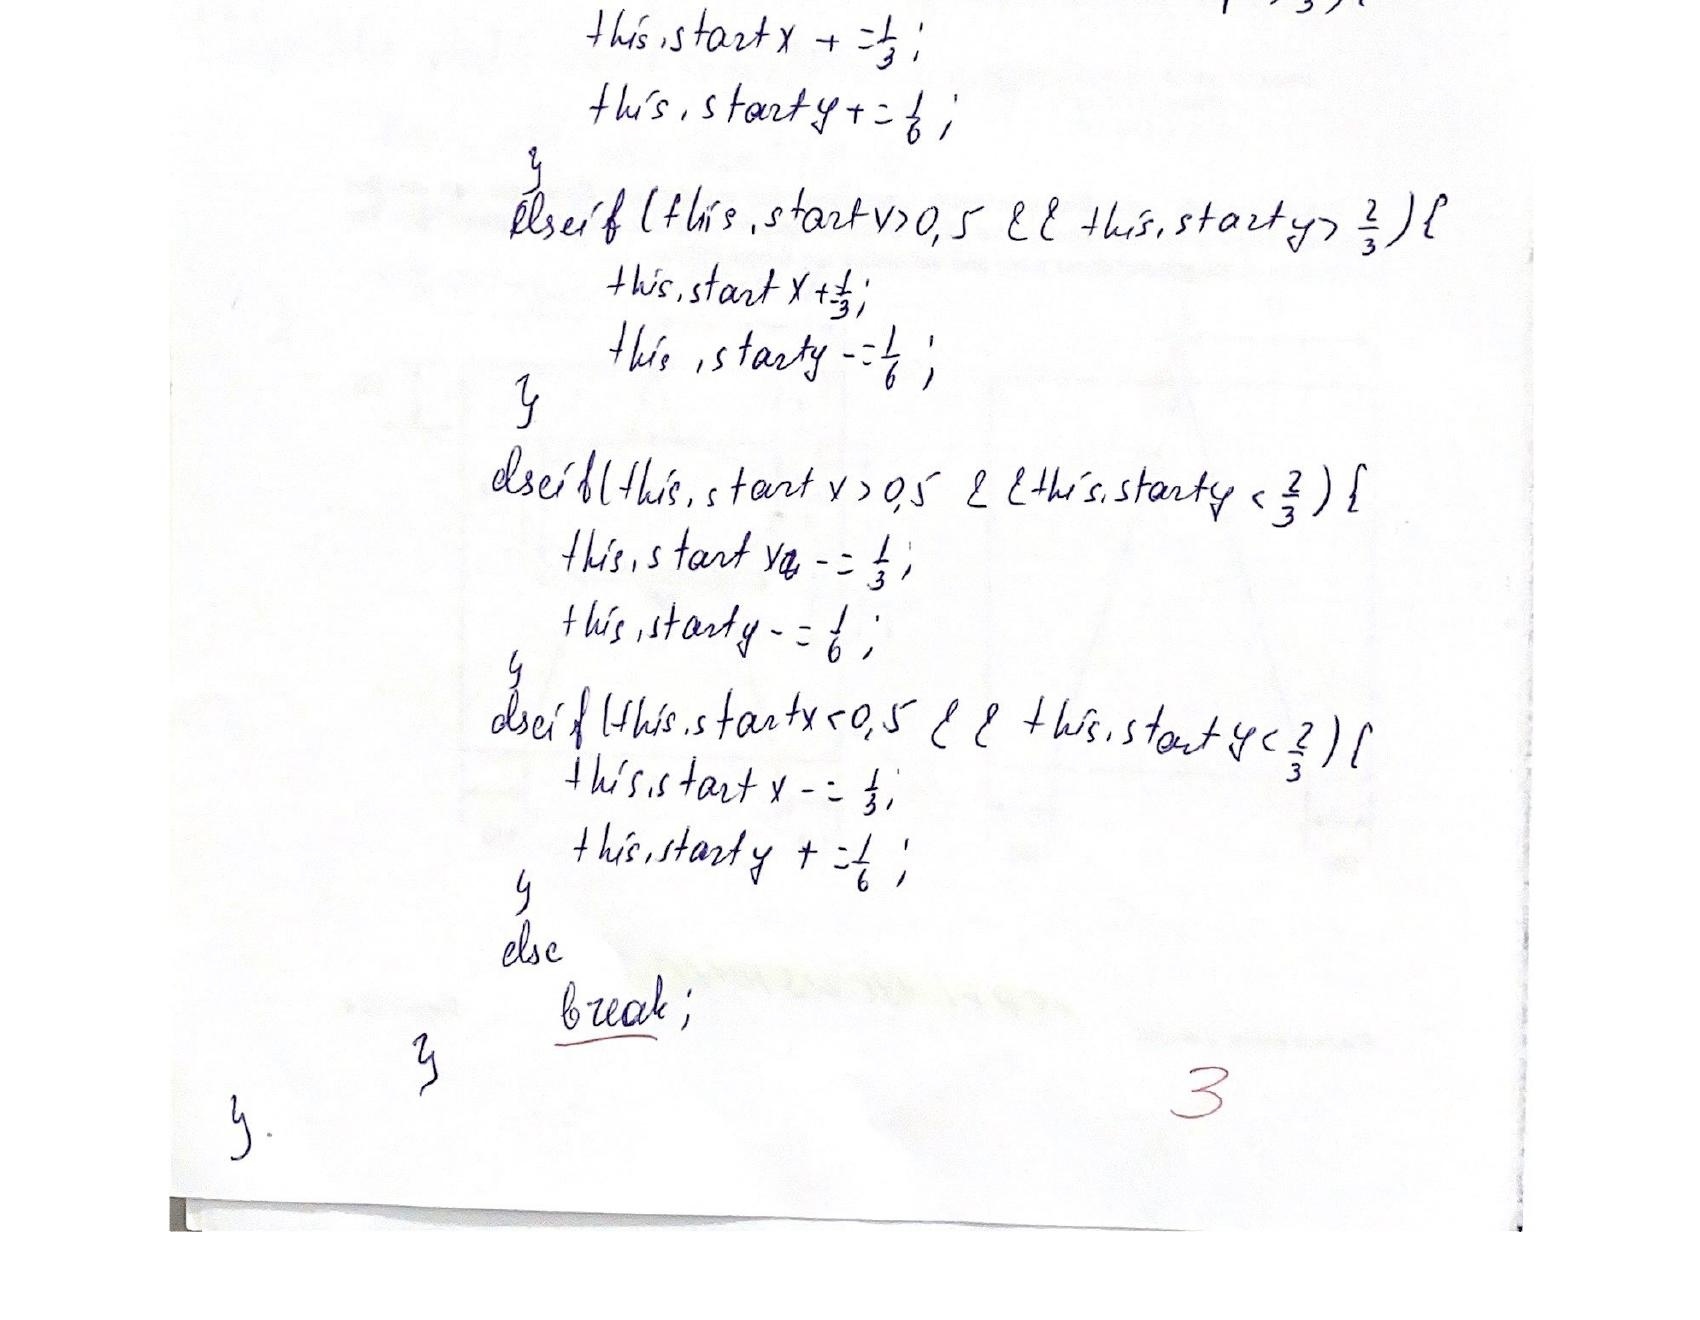 this.startx += 1/3;
this.starty += 1/6;
}
elseif (this.startx>0,5 && this.starty> 2/3){
this.startx += 1/3;
this.starty -= 1/6;
}
elseif(this.startx>0,5 &&this.starty < 2/3){
this.startx -= 1/3;
this.starty -= 1/6;
}
elseif (this.startx<0,5 && this.starty< 2/3){
this.startx -= 1/3;
this.starty += 1/6;
}
else
break;
}
3
}.